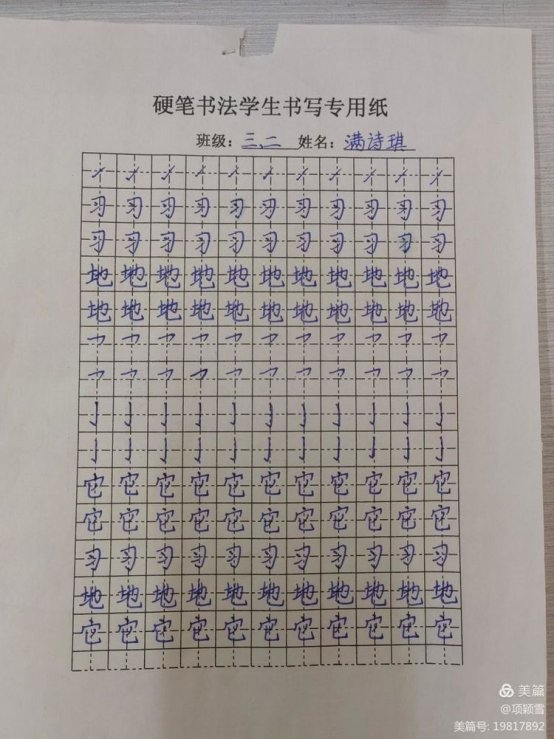 硬笔书法学生书写专用纸
班级：三、二 姓名：满诗琪
习习习习习习习习习习习
习习习习习习习习习习习
地地地地地地地地地地地
地地地地地地地地地地地
它它它它它它它它它它它
它它它它它它它它它它它
习习习习习习习习习习习
地地地地地地地地地地地
它它它它它它它它它它它
美篇
@项颖雪
美篇号: 19817892